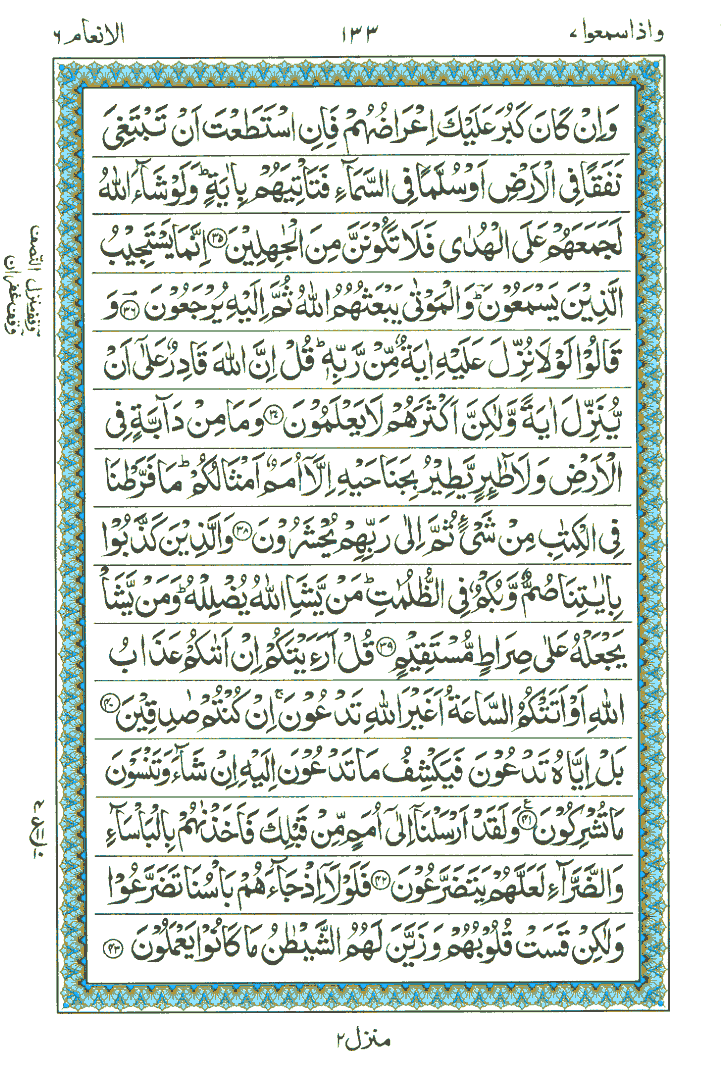 واذا سمعوا ٧
١٣٣
الانعام ٦
وَاِنْ كَانَ كَبُرَ عَلَيْكَ اِعْرَاضُهُمْ فَاِنِ اسْتَطَعْتَ اَنْ تَبْتَغِىَ
نَفَقًا فِى الْاَرْضِ اَوْ سُلَّمًا فِى السَّمَآءِ فَتَاْتِيَهُمْ بِاٰيَةٍ ؕ وَلَوْ شَآءَ اللّٰهُ
لَجَمَعَهُمْ عَلَى الْهُدٰى فَلَا تَكُوْنَنَّ مِنَ الْجٰهِلِيْنَ ۝۳۵ اِنَّمَا يَسْتَجِيْبُ
الَّذِيْنَ يَسْمَعُوْنَ ؕ وَالْمَوْتٰى يَبْعَثُهُمُ اللّٰهُ ثُمَّ اِلَيْهِ يُرْجَعُوْنَ ۝۳۶ وَ
قَالُوْا لَوْلَا نُزِّلَ عَلَيْهِ اٰيَةٌ مِّنْ رَّبِّهٖ ؕ قُلْ اِنَّ اللّٰهَ قَادِرٌ عَلٰٓى اَنْ
يُّنَزِّلَ اٰيَةً وَّلٰكِنَّ اَكْثَرَهُمْ لَا يَعْلَمُوْنَ ۝۳۷ وَمَا مِنْ دَآبَّةٍ فِى
الْاَرْضِ وَلَا طٰٓئِرٍ يَّطِيْرُ بِجَنَاحَيْهِ اِلَّاۤ اُمَمٌ اَمْثَالُكُمْ ؕ مَا فَرَّطْنَا
فِى الْكِتٰبِ مِنْ شَىْءٍ ثُمَّ اِلٰى رَبِّهِمْ يُحْشَرُوْنَ ۝۳۸ وَالَّذِيْنَ كَذَّبُوْا
بِاٰيٰتِنَا صُمٌّ وَّبُكْمٌ فِى الظُّلُمٰتِ ؕ مَنْ يَّشَاِ اللّٰهُ يُضْلِلْهُ ؕ وَمَنْ يَّشَاْ
يَجْعَلْهُ عَلٰى صِرَاطٍ مُّسْتَقِيْمٍ ۝۳۹ قُلْ اَرَءَيْتَكُمْ اِنْ اَتٰىكُمْ عَذَابُ
اللّٰهِ اَوْ اَتَتْكُمُ السَّاعَةُ اَغَيْرَ اللّٰهِ تَدْعُوْنَ ۚ اِنْ كُنْتُمْ صٰدِقِيْنَ ۝۴۰
بَلْ اِيَّاهُ تَدْعُوْنَ فَيَكْشِفُ مَا تَدْعُوْنَ اِلَيْهِ اِنْ شَآءَ وَتَنْسَوْنَ
مَا تُشْرِكُوْنَ ۝۴۱ وَلَقَدْ اَرْسَلْنَاۤ اِلٰٓى اُمَمٍ مِّنْ قَبْلِكَ فَاَخَذْنٰهُمْ بِالْبَاْسَآءِ
وَالضَّرَّآءِ لَعَلَّهُمْ يَتَضَرَّعُوْنَ ۝۴۲ فَلَوْلَاۤ اِذْ جَآءَهُمْ بَاْسُنَا تَضَرَّعُوْا
وَلٰكِنْ قَسَتْ قُلُوْبُهُمْ وَزَيَّنَ لَهُمُ الشَّيْطٰنُ مَا كَانُوْا يَعْمَلُوْنَ ۝۴۳
منزل ٢